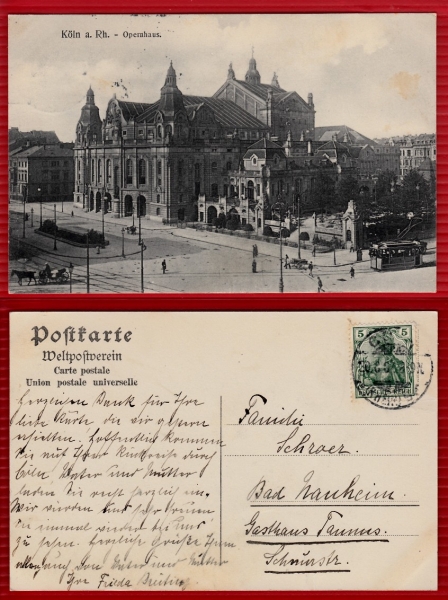 Köln a. Rh. - Opernhaus.
Postkarte
Weltpostverein
Carte postale
Union postale universelle
5 5
Herzlichen Dank für Ihre
liebe Karte die wir gern
erhielten. Hoffentlich kommen
Sie auf Ihrer Rückreise durch
Cöln. Vater und Mutter
laden Sie recht herzlich ein.
Wir würden uns sehr freuen
Sie einmal wieder bei uns
zu sehen. Herzliche Grüße Ihnen
allen auch von Vater und Mutter
Ihre Frieda
Familie
Schroer.
Bad Nauheim.
Gasthaus Taunus.
Schnurstr.